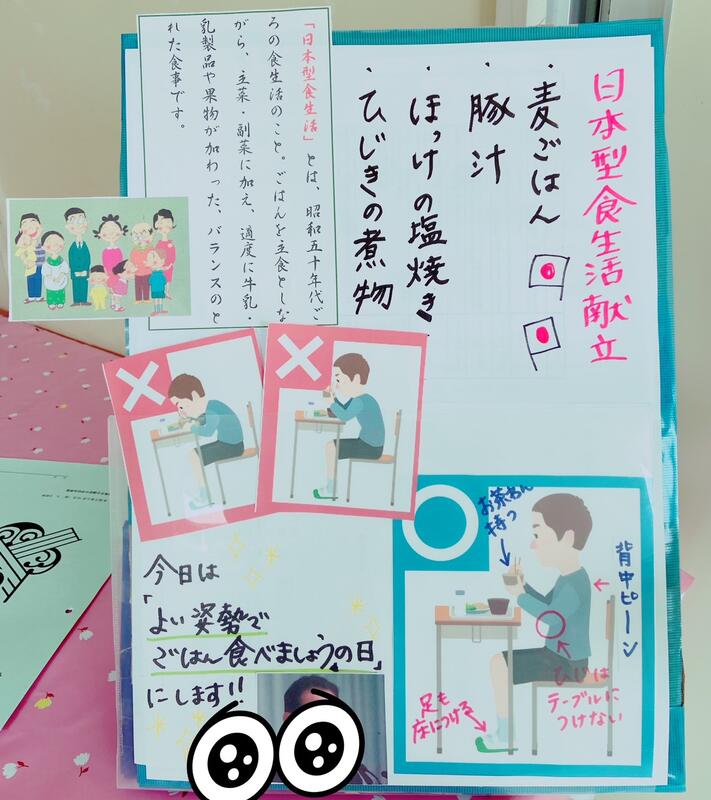 日本型食生活献立
・麦ごはん
・豚汁
・ほっけの塩焼き
・ひじきの煮物
「日本型食生活」とは、昭和五十年代ご
ろの食生活のこと。ごはんを主食としな
がら、主菜・副菜に加え、適度に牛乳・
乳製品や果物が加わった、バランスのと
れた食事です。
今日は
「よい姿勢で
ごはん食べましょうの日」
にします!!
お茶わん
持つ
背中ピーン
ひじは
テーブルに
つけない
足も
床につける